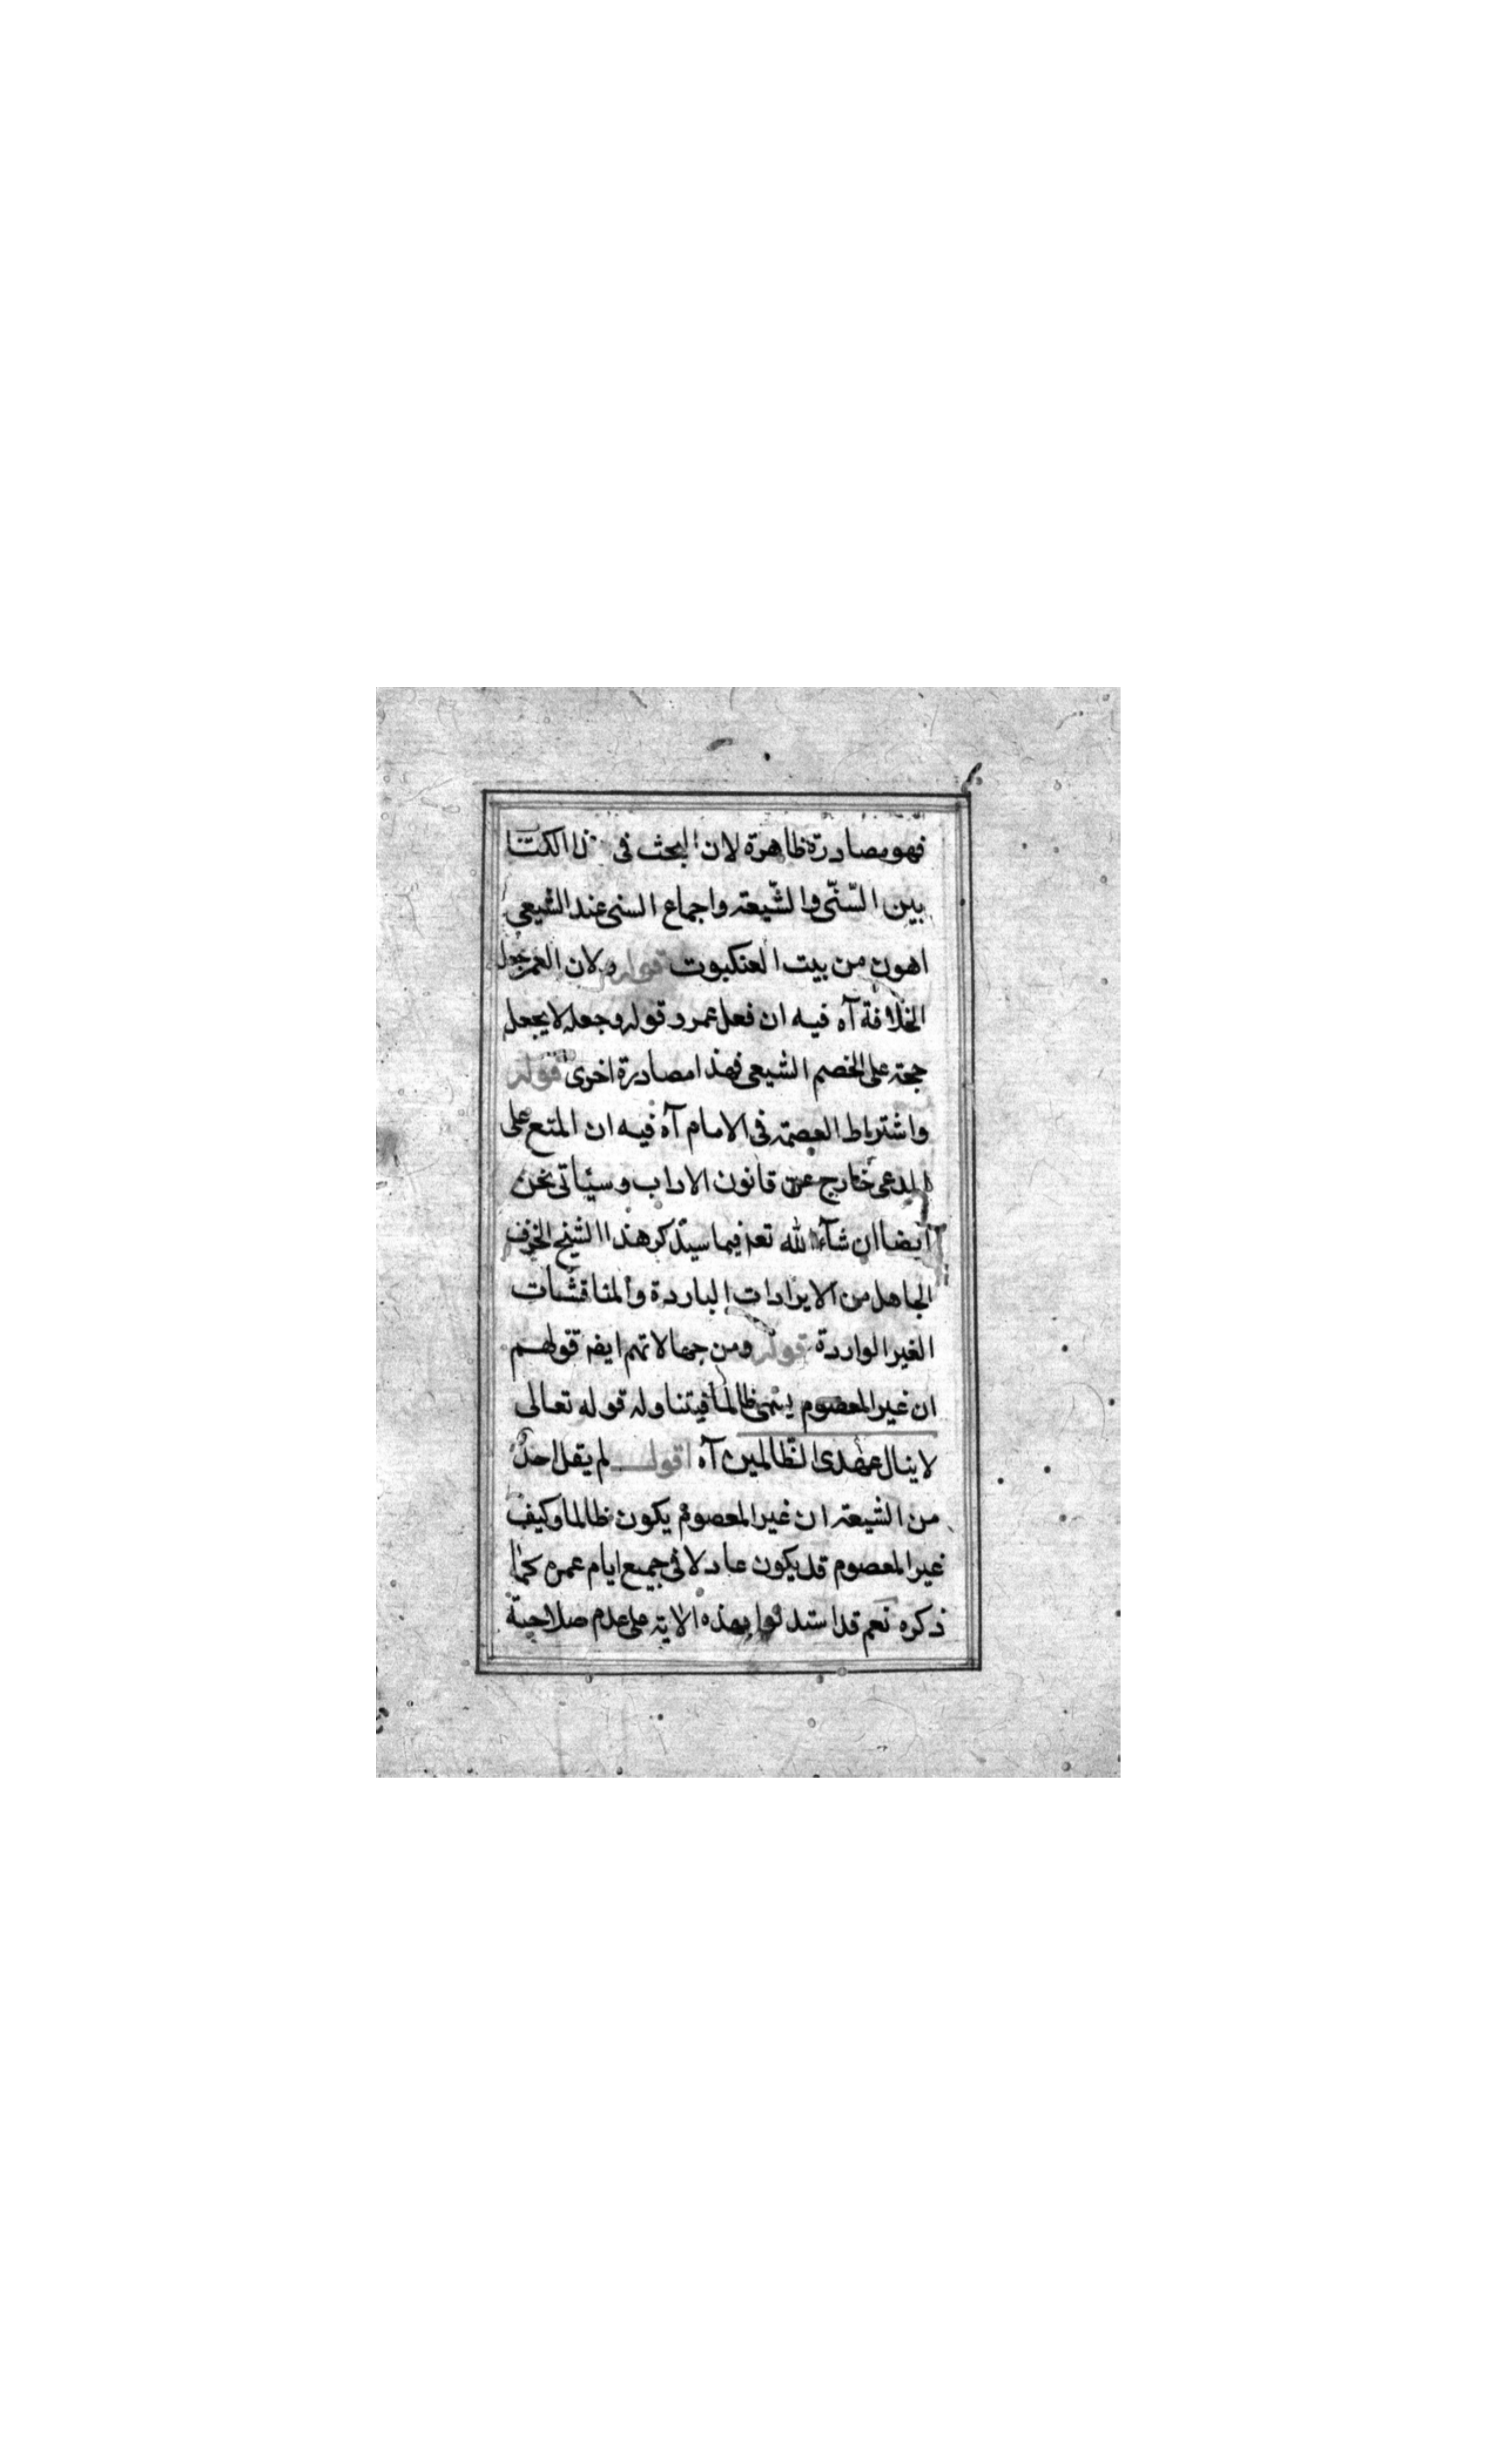 فهو مصادرة ظاهرة لان البحث فى الكتا
بين السّنّى والشّيعه واجماع السنى عند الشيعى
اهون من بيت العنكبوت قوله ولان العمر جعل
الخلافة آه فيه ان فعل عمر و قوله وجعله لا يجعل
حجته على الخصم الشيعى فهذا مصادرة اخرى قوله
واشتراط العصمة فى الامام آه فيه ان المنع على
المدعى خارج عن قانون الاداب وسيئاتى نحن
ايضا ان شآء الله تعه فيما سيذكر هذا الشيخ الخرف
الجاهل من الايرادات الباردة والمناقشات
الغير الواردة قوله ومن جهالاتهم ايضه قولهم
ان غير المعصوم يسمى ظالما فيتناوله قوله تعالى
لا ينال عهدى الظّالمين آه اقول لم يقل احد
من الشيعه ان غير المعصوم يكون ظالما وكيف
غير المعصوم قد يكون عادلا فى جميع ايام عمره كما
ذكره نعم قد استدلوا بهذه الايته على عدم صلاحية